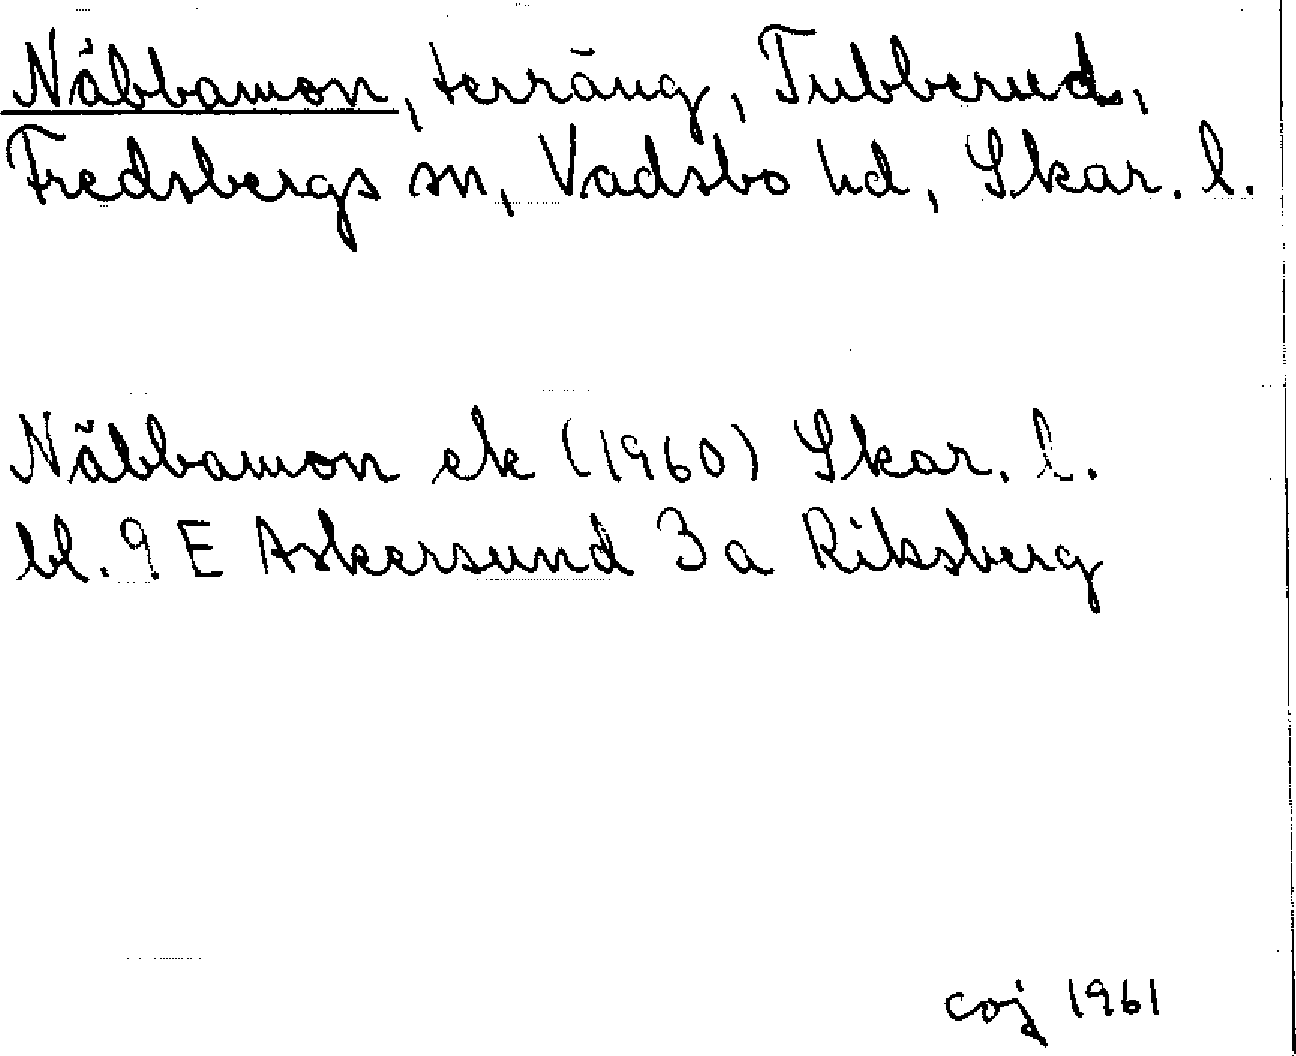 Näbbamon, terräng, Tubberud,
Fredsbergs sn, Vadsbo hd, Skar. l.
Näbbamon ek (1960) Skar. l.
bl. 9 E Askersund 3 a Riksberg
coj 1961